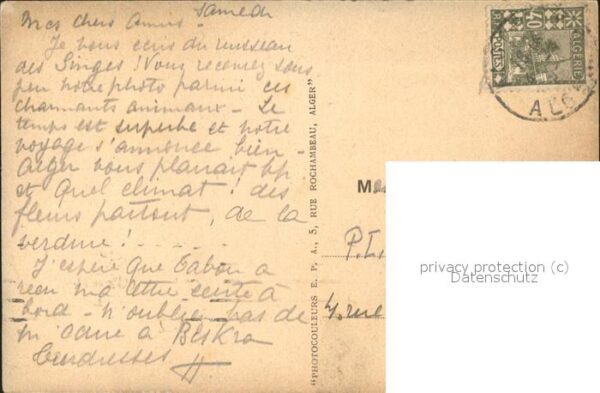 Samedi
Mes chers Amis -
Je vous écris du ruisseau
des Singes ! Vous recevrez sous
peu notre photo parmi ces
charmants animaux - Le
temps est superbe et notre
voyage s'annonce bien -
Alger vous plairait bp
et quel climat ! des
fleurs partout, de la
verdure ! - - - - -
J'espère que a
reçu ma lettre écrite à
bord - N'oubliez pas de
m' à Biskra
Tendresses
"PHOTOCOULEURS E. P. A., 5, RUE ROCHAMBEAU, ALGER"
40
ALGERIE
POSTES
RF
ALG
M
P.L.
4, rue
privacy protection (c)
Datenschutz